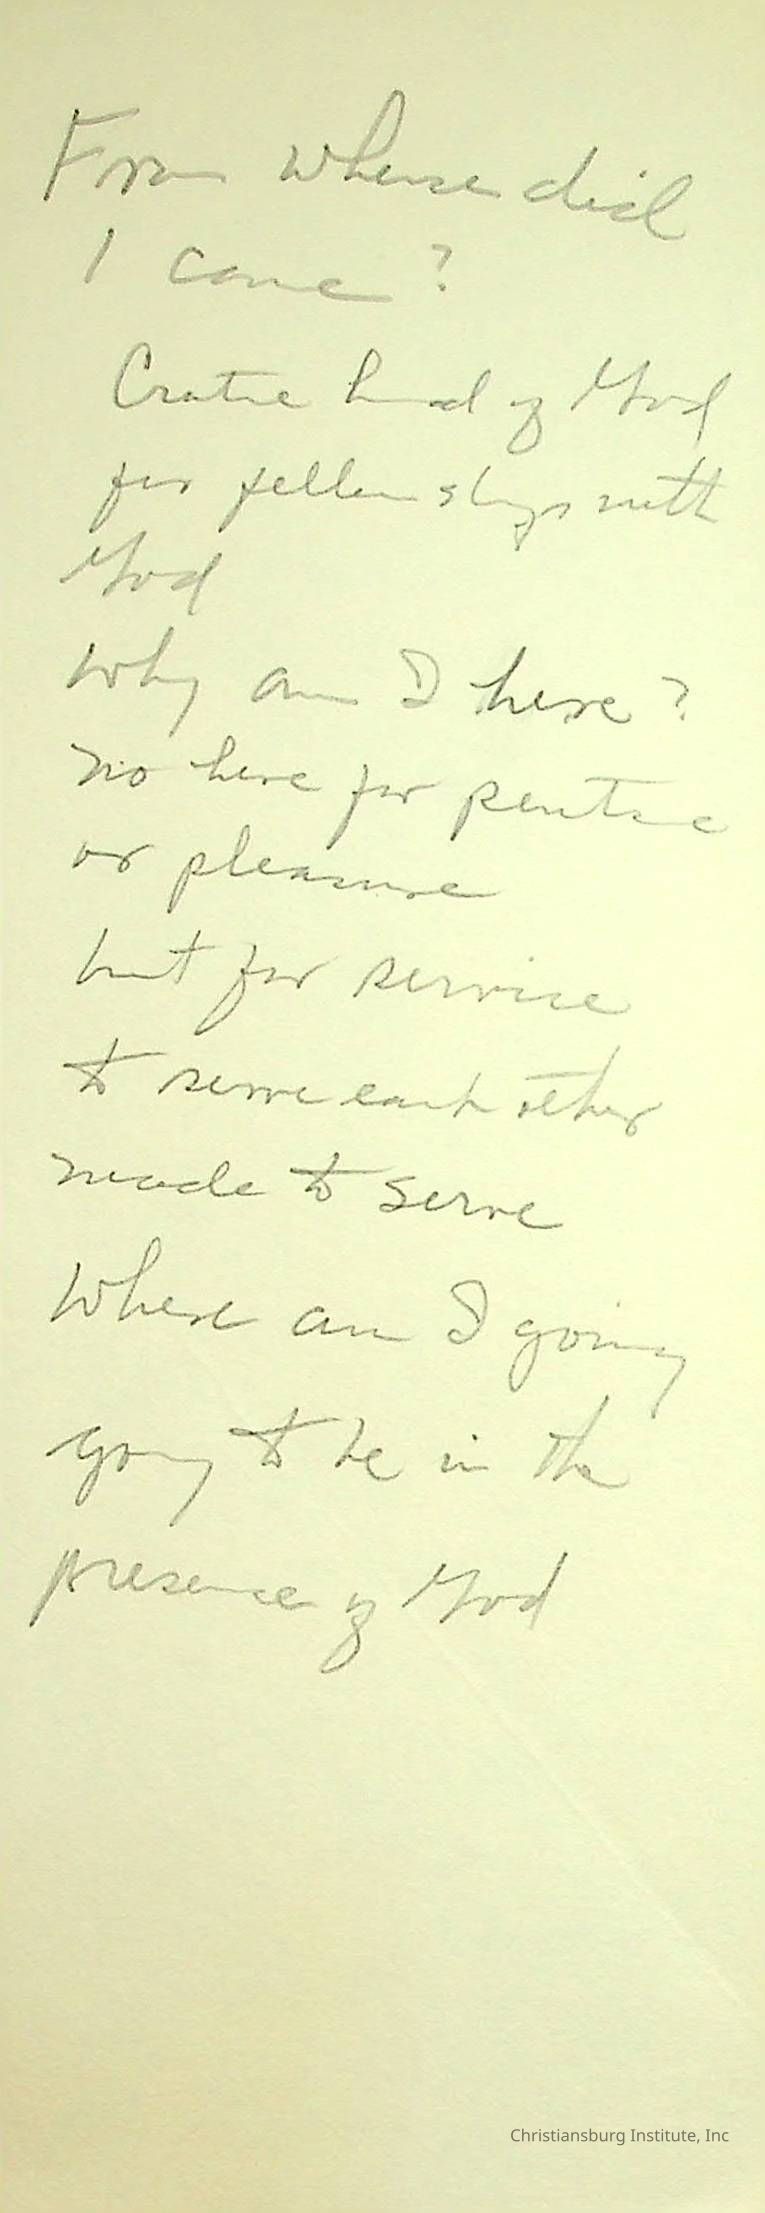 From whense did
I come?
Crative hand of God
for fellowships with
God
Why am I here?
No here for
or pleasure
but for service
to serve each other
made to serve
Where am I going
going to be in the
presence of God
Christiansburg Institute, Inc